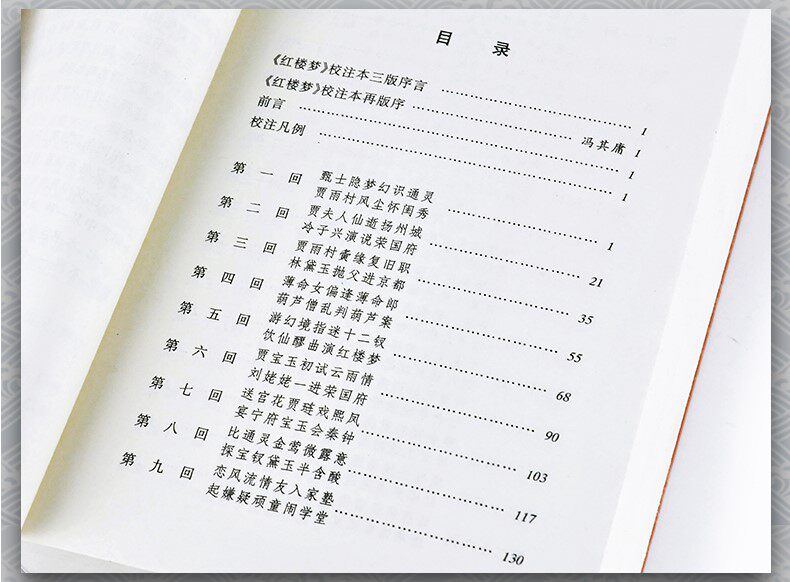 目 录
《红楼梦》校注本三版序言 …… 1
《红楼梦》校注本再版序 …… 冯其庸 1
前言 …… 1
校注凡例 …… 1
第一回 甄士隐梦幻识通灵
贾雨村风尘怀闺秀 …… 1
第二回 贾夫人仙逝扬州城
冷子兴演说荣国府 …… 21
第三回 贾雨村夤缘复旧职
林黛玉抛父进京都 …… 35
第四回 薄命女偏逢薄命郎
葫芦僧乱判葫芦案 …… 55
第五回 游幻境指迷十二钗
饮仙醪曲演红楼梦 …… 68
第六回 贾宝玉初试云雨情
刘姥姥一进荣国府 …… 90
第七回 送宫花贾琏戏熙凤
宴宁府宝玉会秦钟 …… 103
第八回 比通灵金莺微露意
探宝钗黛玉半含酸 …… 117
第九回 恋风流情友入家塾
起嫌疑顽童闹学堂 …… 130